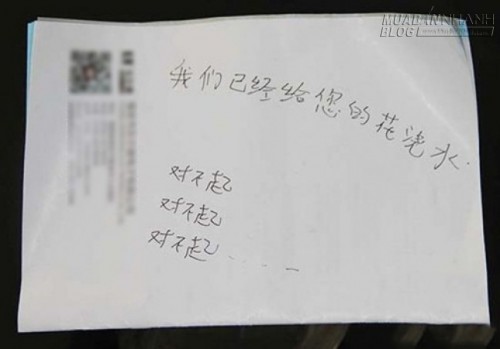 MUABANNHANH
BLOG
我们已经给您的花浇水.
对不起
对不起
对不起.....